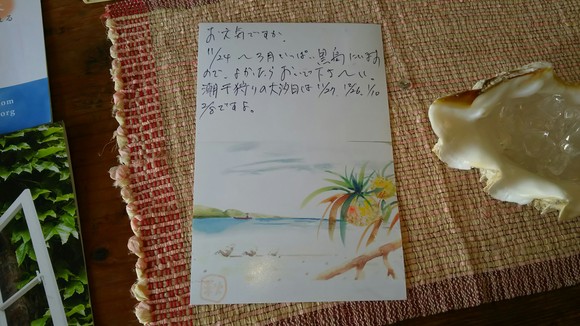 お元気ですか。
11/24 〜 3月いっぱい 黒島にいます
ので、よかったら おいで下さ〜い。
潮干狩りの大汐日は 11/27, 12/26, 1/10
2/8ですよ。
om
org